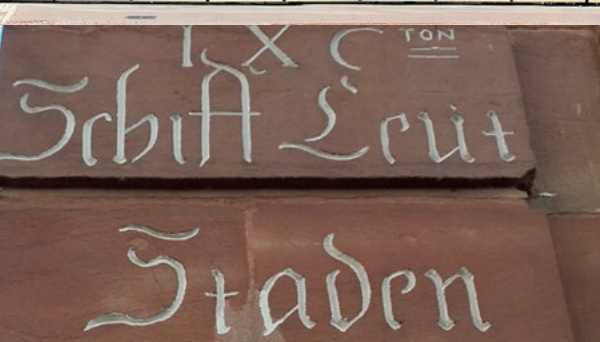 IX CTON
Schiff Leüt
Staden